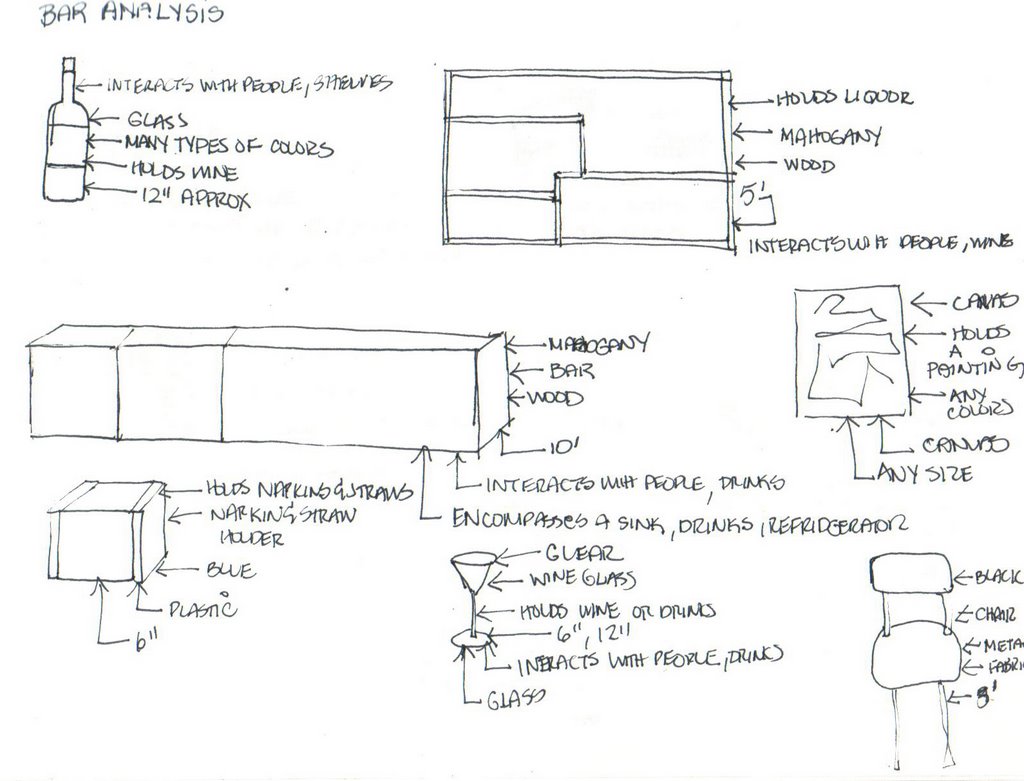 BAR ANALYSIS
INTERACTS WITH PEOPLE, SHELVES
GLASS
MANY TYPES OF COLORS
HOLDS WINE
12" APPROX
HOLDS LIQUOR
MAHOGANY
WOOD
5'
INTERACTS WITH PEOPLE, WINE
MAHOGANY
BAR
WOOD
10'
INTERACTS WITH PEOPLE, DRINKS
ENCOMPASSES A SINK, DRINKS, REFRIDGERATOR
CANVAS
HOLDS
A
PAINTING,
ANY
COLORS
CANVAS
ANY SIZE
HOLDS NAPKINS & STRAWS
NAPKIN & STRAW
HOLDER
BLUE
PLASTIC
6"
CLEAR
WINE GLASS
HOLDS WINE OR DRINKS
6", 12"
INTERACTS WITH PEOPLE, DRINKS
GLASS
BLACK
CHAIR
META
FABRIC
3'